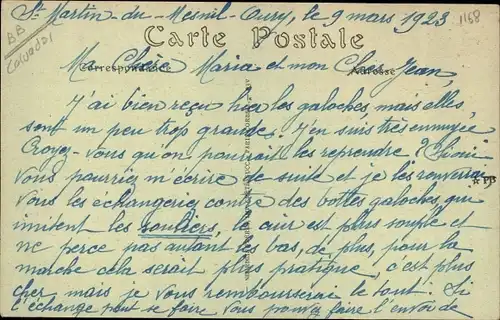 St Martin-du-Mesnil-Oury, le 9 mars 1923
1158
BB
Calvados
Carte Postale
Correspondance
Adresse
Ma Chère Maria et mon Cher Jean,
J'ai bien reçu hier les galoches, mais elles
sont un peu trop grandes. J'en suis très ennuyée
Croyez-vous qu'on pourrait les reprendre ?
vous pourriez m'écrire de suite et je les renverrai
Vous les échangeriez contre des bottes galoches, qui
imitent les souliers, le cuir est plus souple et
ne perce pas autant les bas, de plus, pour la
marche cela serait plus pratique, c'est plus
cher mais je vous rembourserai le tout. Si
l'échange peut se faire vous pouvez faire l'envoi de